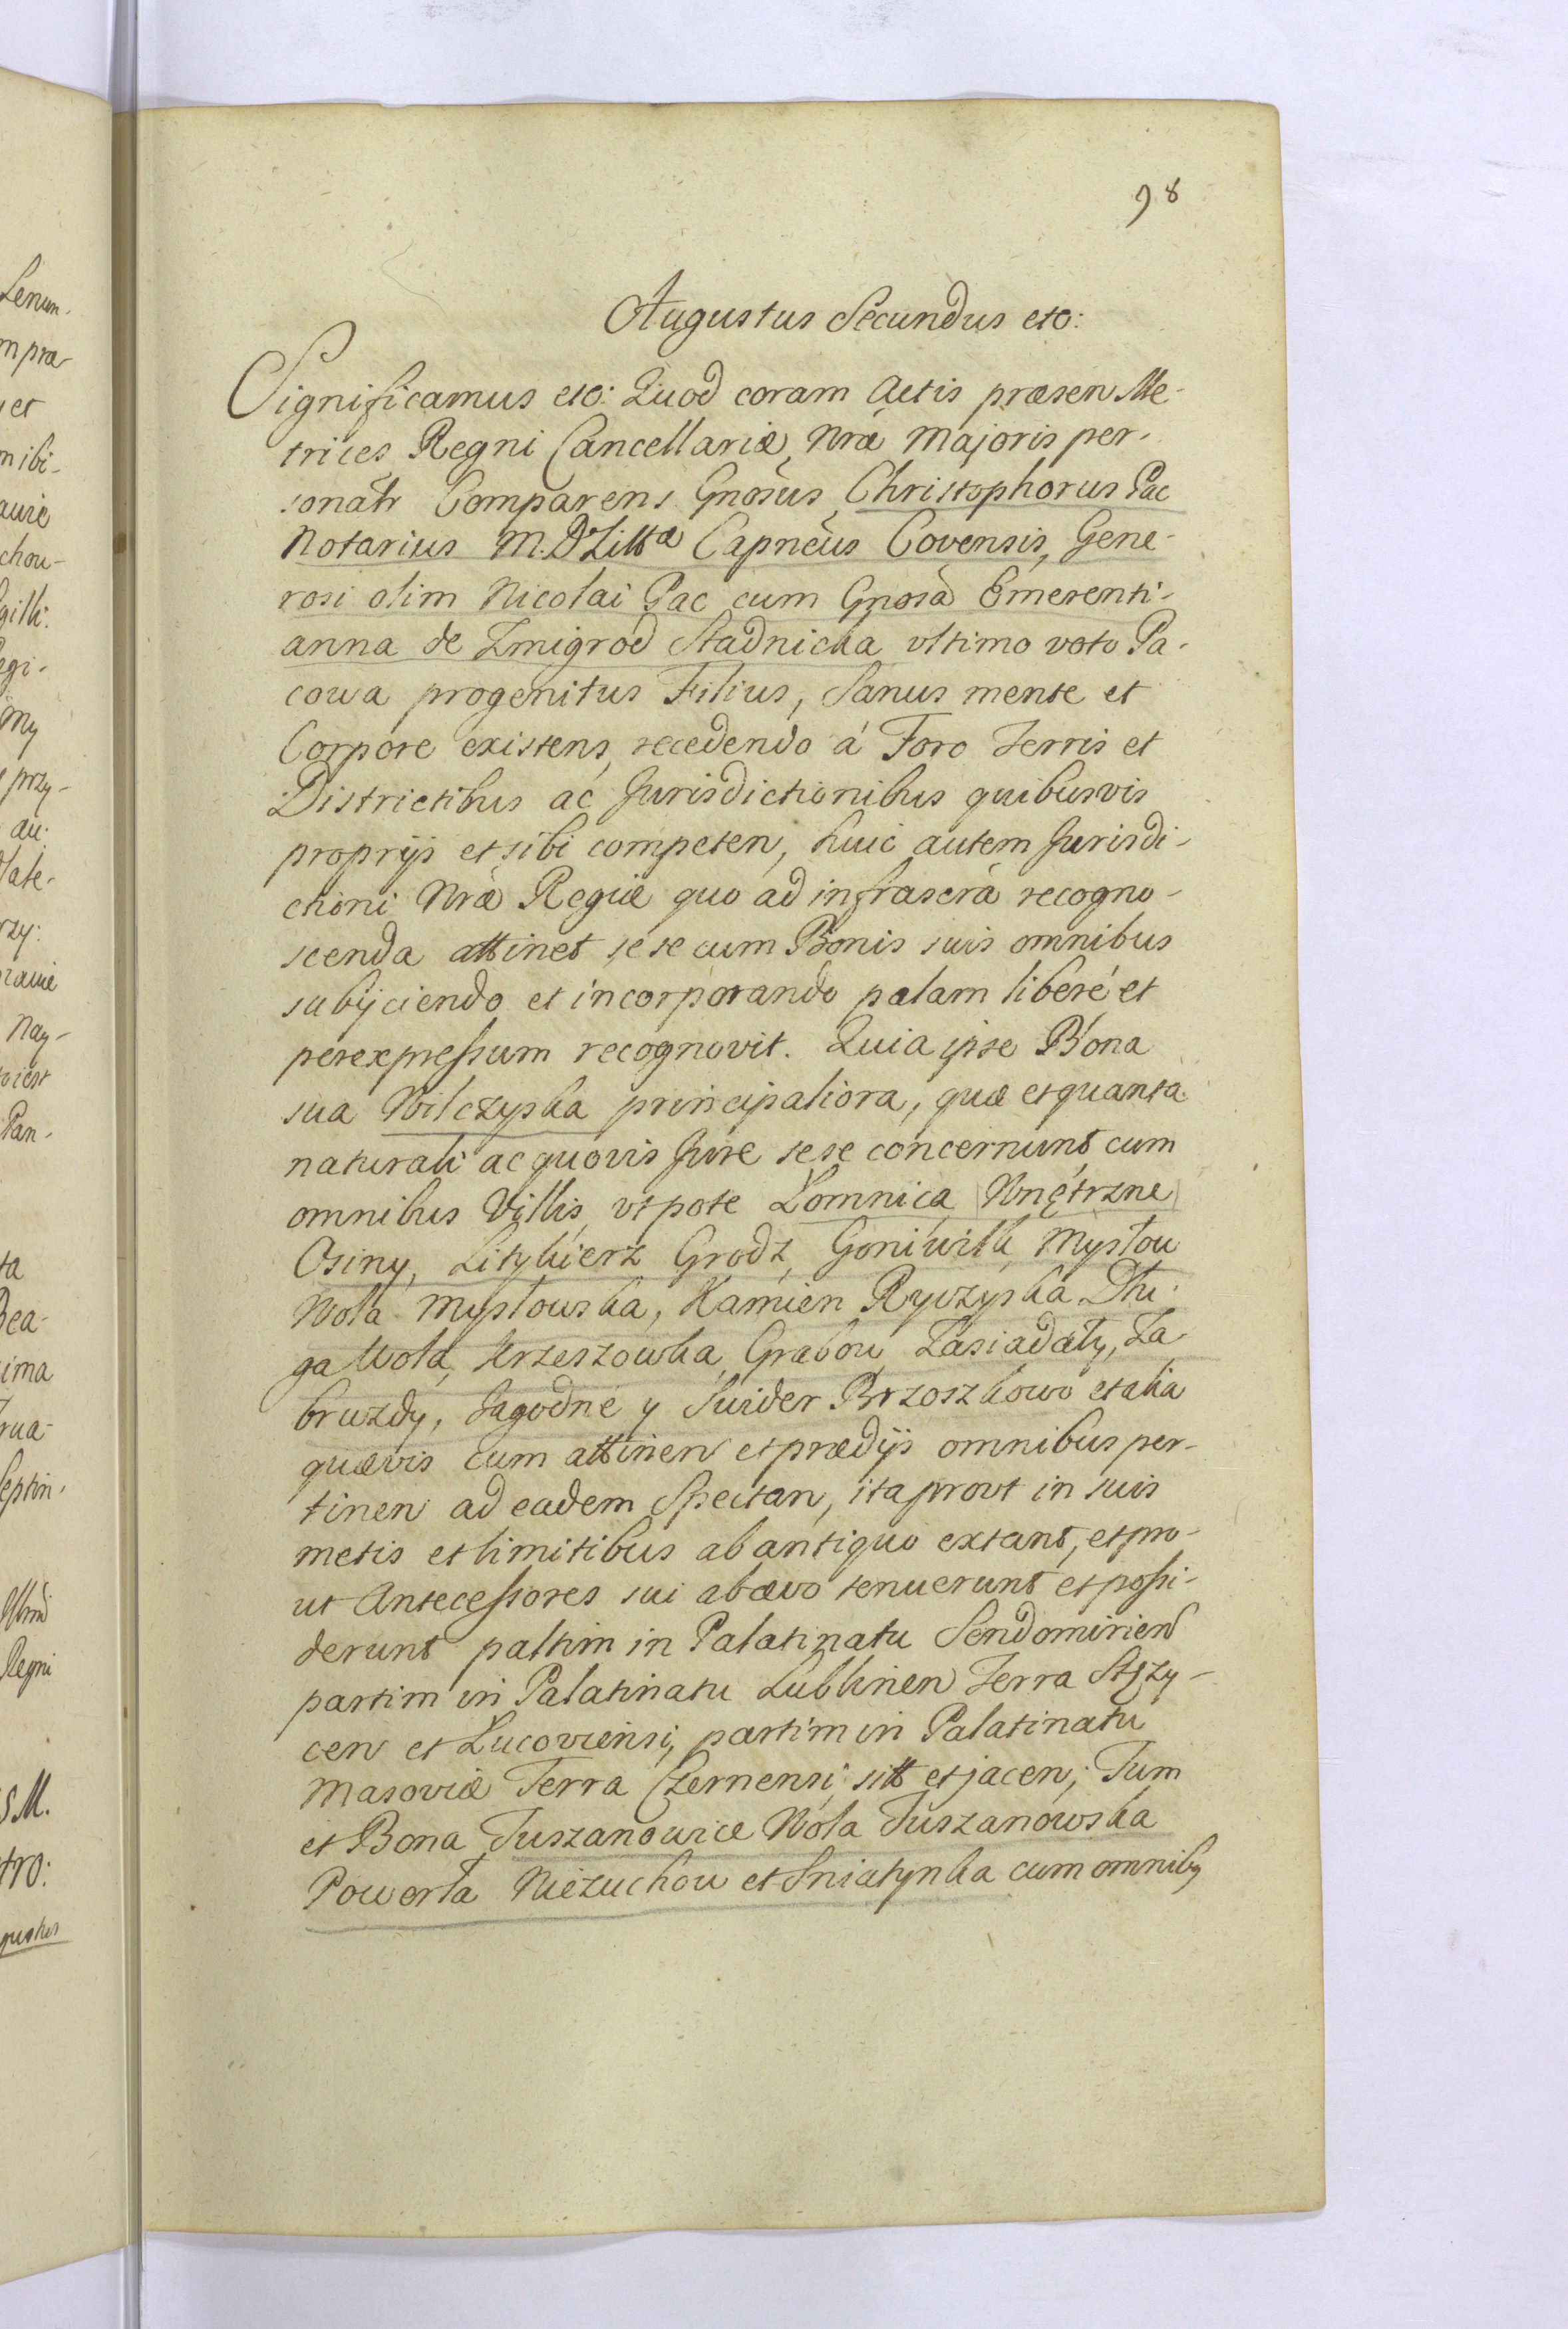 98
Augustus Secundus etc:
Significamus etc: Quod coram Actis præsen Me-
trices Regni Cancellariæ Nræ Majoris per-
sonatr Comparens Gnosus Christophorus Pac
Notarius M. D Litta Capneus Covensis, Gene-
rosi olim Nicolai Pac cum Gnosa Emerenti-
anna de Zmigrod Stadnicka ultimo voto Pa-
cowa progenitus Filius, Sanus mente et
Corpore existens, recedendo á Foro Terris et
Districtibus ac Jurisdictionibus quibusvis
proprijs et sibi competen, huic autem Jurisdi-
ctioni Nræ Regiæ quo ad infrascra recogno-
scenda attinet sese cum Bonis suis omnibus
subijciendo et incorporando palam liberé et
perexpressum recognovit. Quia ipse Bona
sua Wilczyska principaliora, quæ et quanta
naturali ac quovis Jure sese concernunt cum
omnibus Villis, utpote Łomnica Wnętrzne
Osiny, Litykierz Grodz, Goniwilk, Mysłow
Wola Mysłowska, Kamien Ryczyska Dłu-
ga Wola, Krzeszowka Grabow Zasiadały, Za-
bruzdy, Jagodne y Swider Brzoszkowo et alia
quævis cum attinen et prædijs omnibus per-
tinen ad eadem Spectan, ita prout in suis
metis et limitibus ab antiquo extant, et pro-
ut Antecessores sui ab ævo tenuerunt et possi-
derunt paltim in Palatinatu Sendomirien
partim in Palatinatu Lublinen Terra Stęzy-
cen et Lucoviensi, partim in Palatinatu
Masoviæ Terra Czernensi sitt et jacen; Tum
et Bona Tuszanowice Wola Tuszanowska
Powerła Niezuchow et Sniatynka cum omnibq